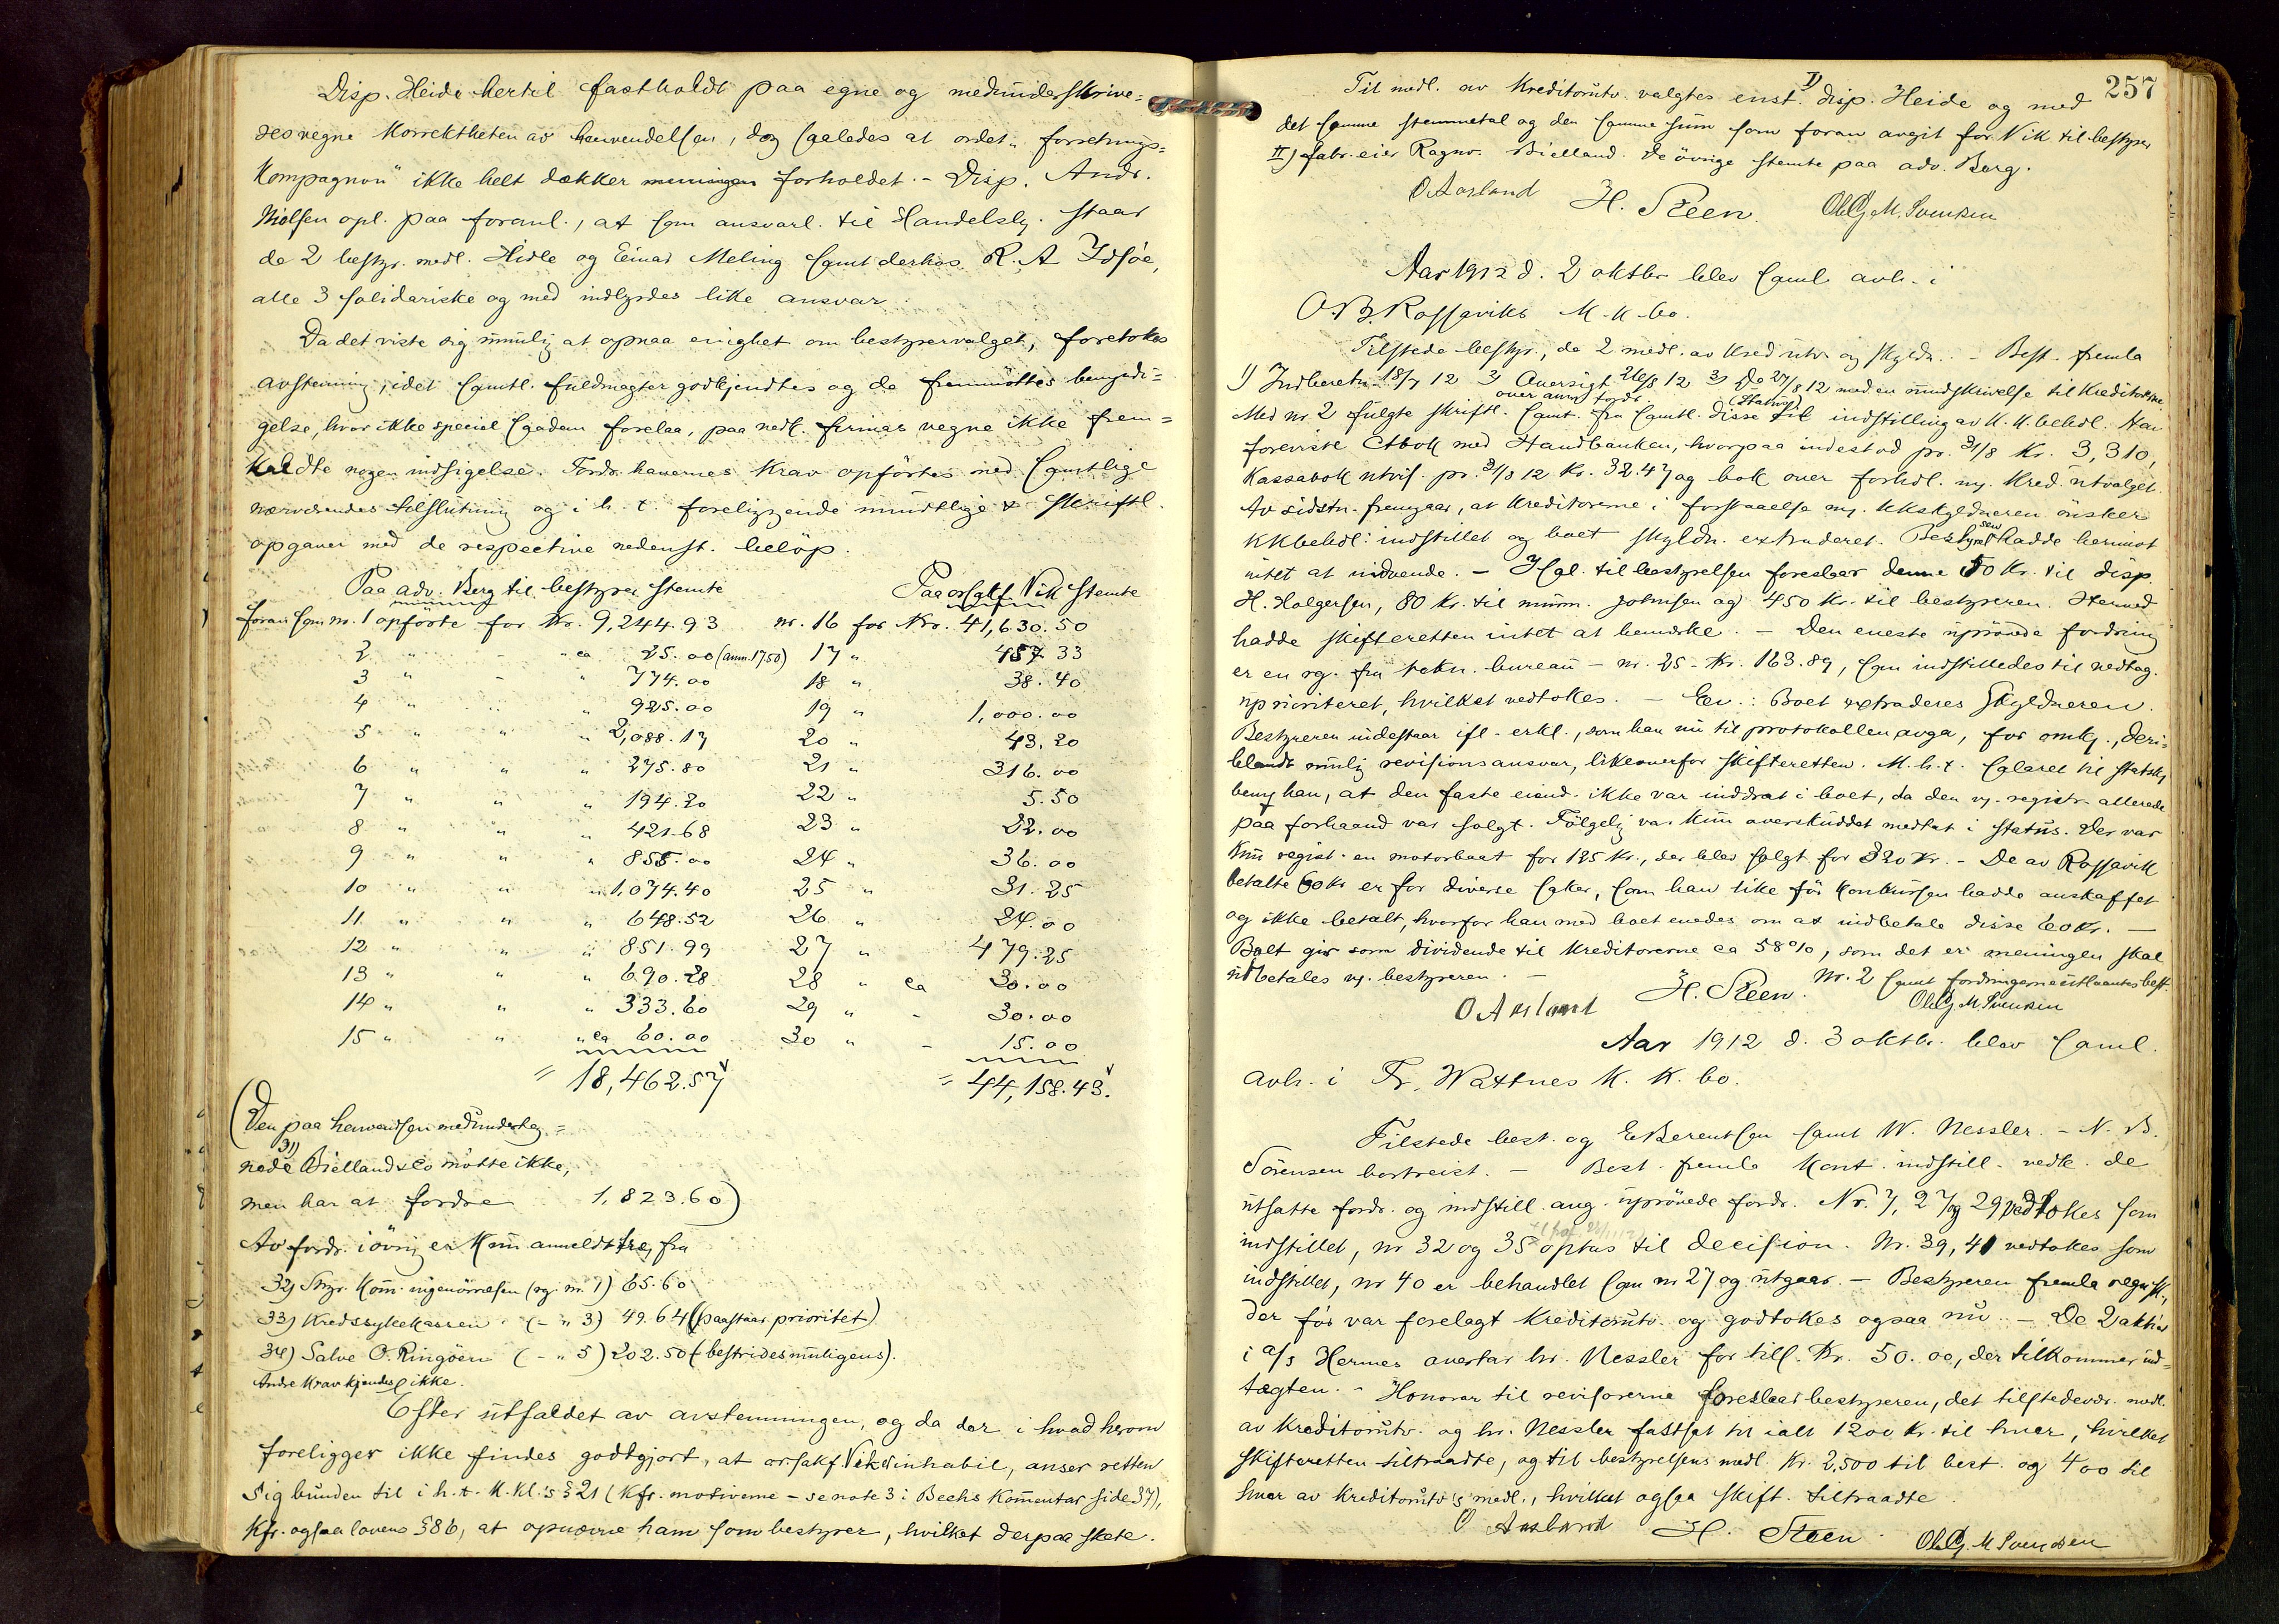 Disp. Heide hertil fastholdt paa egne og medunderskrive=
res vegne korrektheten av henvendelsen, dog saaledes at ordet "forretnings=
kompagnon" ikke helt dækker meningen forholdet. - Disp. Andr.
Nielsen opl. paa foranl., at som ansvarl. til Handelsreg. staar
de 2 bestyr. medl. Hidle og Einar Meling samt derhos R. A Idsöe,
alle 3 solidariske og med indbyrdes like ansvar.
Da det viste sig umulig at opnaa enighet om bestyrervalget, foretokes
avstemning, idet samtl. fuldmagter godkjendtes og de fremmöttes bemyndi=
gelse, hvor ikke speciel saadan forelaa, paa vedk. firmas vegne ikke frem=
kaldte nogen indsigelse. Fordr.havernes krav opförtes med samtlige
nærværendes tilslutning og i h. t. foreliggende mundtlige & skriftl.
opgaver med de respective nedenst. belöp.
Paa adv. Berg til bestyrer stemte
Paa orsakf Vik stemte
foran som nr. 1 opförte for Kr. 9,244.93 nr. 16 for Kr. 41,630.50
2 " - " ca 25.00 (anm. 17.50) 17 " 457.33
3 " - " 774.00 18 " 38.40
4 " " " 925.00 19 " 1,000.00
5 " " " 2,088.17 20 " 43.20
6 " " " 275.80 21 " 316.00
7 " " " 194.20 22 " 5.50
8 " " " 421.68 23 " 22.00
9 " " " 855.00 24 " 36.00
10 " " " 1,074.40 25 " 31.25
11 " " " 648.52 26 " 24.00
12 " " " 851.99 27 " 479.25
13 " " " 690.28 28 " ca 30.00
14 " " " 333.60 29 " - 30.00
15 " " " ca 60.00 30 " - 15.00
= 18,462.57 = 44,158.43.
(Den paa henvendsen medunderteg=
31)
nede Bielland & Co mötte ikke,
men har at fordre 1,823.60)
Av fordr. iövrig er kun anmeldt tre, fra
32) Stvgr. kom. ingeniörvesen (rg. nr. 1) 65.60
33) Kredssykekassen (- " 3) 49.64 (paastaar prioritet)
34) Salve O. Ringöen (- " 5) 202.50 (bestrides muligens).
Andre krav kjendes ikke.
Efter utfaldet av avstemningen, og da der i hvad herom
foreligger ikke findes godtgjort, at orsakf. Vik er inhabil, anser retten
sig bunden til i h. t. K.kl.'s § 21 (Kfr. motiverne - se note 3 i Beehs Komentar side 37),
Kfr. ogsaa lovens § 86, at opnævne ham som bestyrer, hvilket derpaa skete.
257
Til medl. av kreditorutv. valgtes enst. I) disp. Heide og med
det samme stemmetal og den samme sum som foran avgit for Vik til bestyrer
II) fabr.eier Ragnv. Bielland. De övrige stemte paa adv. Berg.
O Aasland H. Steen Ole G. M. Svendsen
Aar 1912 d. 2 oktbr blev saml. avh. i
O. B. Rossaviks K. K. bo.
Tilstede bestyr., de 2 medl. av kred utv. og skyldn. - Best. fremla
1) Indberetn. 18/7 12 2) Oversigt 26/8 12 3) Do 27/8 12 med en rundskrivelse til kreditorene.
over anm. fordr. (Status)
Med nr 2 fulgte skriftl. samt. fra samtl. disse til indstilling av K. K. behdl. Han
foreviste Ctbok med Handbanken, hvorpaa indestod pr. 31/8 Kr. 3,310,
Kassabok utvis. pr. 31/8 12 Kr. 32.47 og bok over forhdl. mg. kred. utvalget.
Av sidstn. fremgaar, at kreditorerne i forstaaelse mg. kkskyldneren önsker
KKbehdl. indstillet og boet skyldn. extraderet. Bestyrelsen hadde herimot
intet at indvende. - Sal. til bestyrelsen foreslaar denne 50 Kr. til disp.
H. Holgersen, 80 Kr. til murm. Johnsen og 450 Kr. til bestyreren. Hermed
hadde skifteretten intet at bemerke. - Den eneste uprövede fordring
er en rg. fra tekn. bureau - nr. 25 - Kr. 163.89, som indstilledes til vedtag.
uprioriteret, hvilket vedtokes. - Er.: Boet extraderes skyldneren.
Bestyreren indestaar ifl. erkl., som han nu til protokollen avga, for omk., deri=
blandt mulig revisionsansvar, likeoverfor skifteretten. M. h. t. salæret til statsk.
bem. han, at den faste eiend. ikke var inddrat i boet, da den vg. registr. allerede
paa forhaand var solgt. Fölgelig var kun overskuddet medtat i status. Der var
kun regist. en motorbaat for 125 Kr., der blev solgt for 320 Kr. - De av Rossavik
betalte 60 Kr er for diverse saker, som han like för konkursen hadde anskaffet
og ikke betalt, hvorfor han med boet enedes om at indbetale disse 60 Kr. -
Boet gir som dividende til kreditorerne ca 58 %, som det er meningen skal
utbetales vg. bestyreren. - Nr. 2 samt fordringerne utlaantes best.
O Aasland H. Steen. Ole G. M. Svendsen
Aar 1912 d. 3 oktbr. blev saml.
avh. i Fr. Wattnes K. K. bo.
Tilstede best. og E Berentsen samt W. Nessler. - N. B.
Sörensen bortreist. - Best. fremla kont. indstill. vedk. de
utsatte fordr. og indstill. ang. uprövede fordr. Nr. 7, 27 og 29 vedtokes som
indstillet, nr 32 og 35 optas til decision. Nr. 39, 41 vedtokes som
indstillet, nr 40 er behandlet som nr 27 og utgaar. - Bestyreren fremla regnsk.,
der för var forelagt kreditorutv. og godtokes ogsaa nu. - De 2 aktier
i a/s Hermes overtar hr. Nessler for tils. Kr. 50.00, der tilkommer ind=
tægten. - Honorar til revisorerne foreslaar bestyreren, det tilstedevær. medl.
av kreditorutv. og hr. Nessler fastsat til ialt 1200 Kr. til hver, hvilket
skifteretten tiltraadte, og til bestyrelsens medl. Kr. 2,500 til best. og 400 til
hver av kreditorutv's medl., hvilket ogsaa skift. tiltraadte.
O Aasland H. Steen. Ole G. M Svendsen